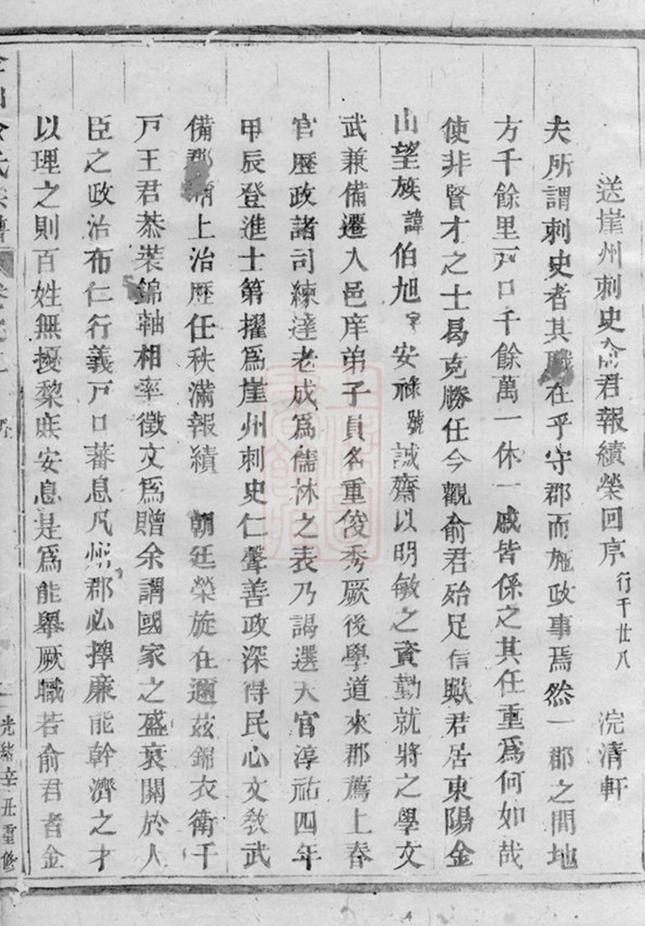 送崖州刺史俞君報績榮回序 行千廿八 浣清軒
夫所謂刺史者其職在乎守郡而施政事焉然一郡之間地
方千餘里戸口千餘萬一休一戚皆係之其任重爲何如哉
使非賢才之士曷克勝任今觀俞君殆足信歟君居東陽金
山望族諱伯旭字安祿號誠齋以明敏之資勤就將之學文
武兼備遷入邑庠弟子員名重俊秀厥後學道來郡薦上春
官歷政諸司練達老成爲儒林之表乃謁選天官淳祐四年
甲辰登進士第擢爲崖州刺史仁聲善政深得民心文敎武
備郡上治歷任秩滿報績 朝廷榮旋在邇茲錦衣衛千
戸王君恭裝錦軸相率徵文爲贈余謂國家之盛衰關於人
臣之政治布仁行義戸口蕃息凡州郡必擇廉能幹濟之才
以理之則百姓無擾黎庶安息是爲能舉厥職若俞君者金
氏宗譜 光緒辛丑重修